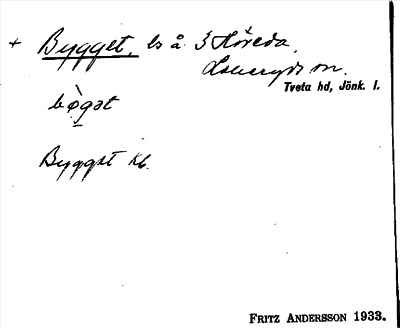 + Bygget, ls å 3 Höreda,
Lsbergds sn.
Tveta hd, Jönk. l.
bø̀gət
Bygget kb.
FRITZ ANDERSSON 1933.